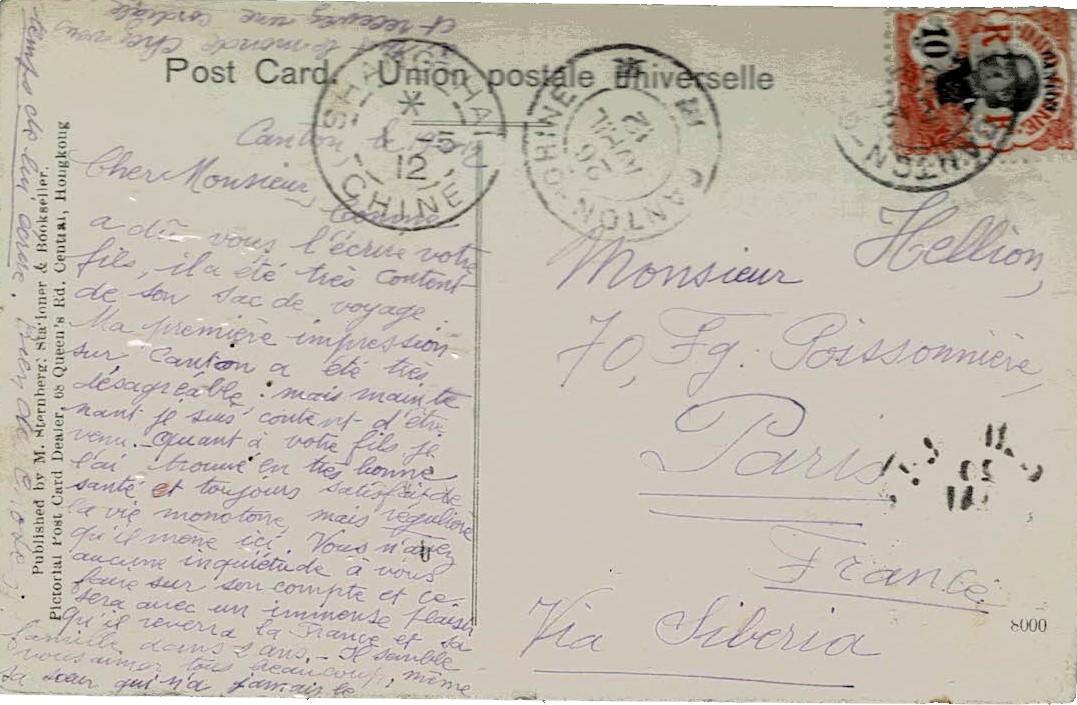 Post Card. Union postale universelle
Canton, le
Cher Monsieur, Comme
a dû vous l'écrire votre
fils, il a été très content
de son sac de voyage.
Ma première impression
sur Canton a été très
désagréable: mais mainte
nant je suis content d'être
venu. Quant à votre fils je
l'ai trouvé en très bonne
santé et toujours satisfait de
la vie monotone, mais régulière
qu'il mène ici. Vous n'avez
aucune inquiétude à vous
faire sur son compte et ce
sera avec un immense plaisir
qu'il reverra la France et sa
famille dans 2 ans. - Il semble
vous aimer tous beaucoup, même
sa sœur qui n'a jamais le
temps de lui écrire.
à tout le monde chez vous
et recevez une cordiale
Published by M. Sternberg: Stationer & Bookseller.
Pictorial Post Card Dealer, 68 Queen's Rd. Central, Hongkong
SHANG-HAI
12
CHINE
CANTON-CHINE
26
AVRIL
12
10
RF
INDOCHINE
CANTON
Monsieur Hellion,
70, Fg. Poissonnière,
Paris
France
Via Siberia
8000